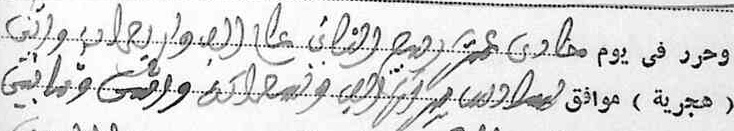 وحرر فى يوم حادى عشر ربيع الثانى عام الف و اربعمايه واثنى
( هجرية ) موافق سادس فبراير الف وتسعمائة واثنى وثمانين